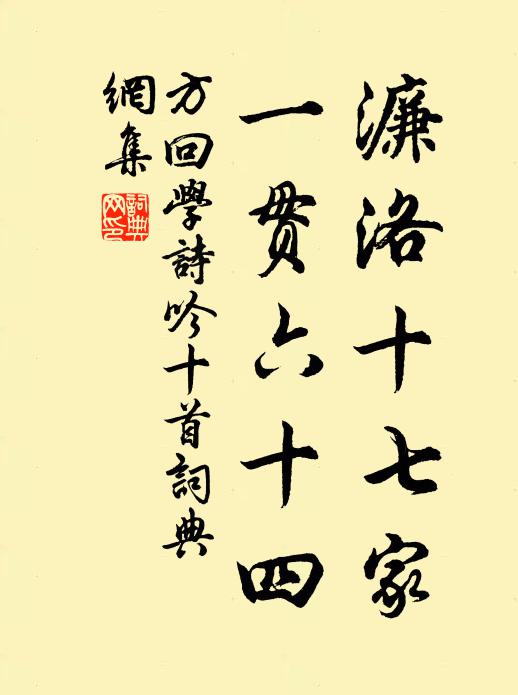 濂洛十七家
一貫六十四
方回學詩吟十首詞典
網集
詞典
网印